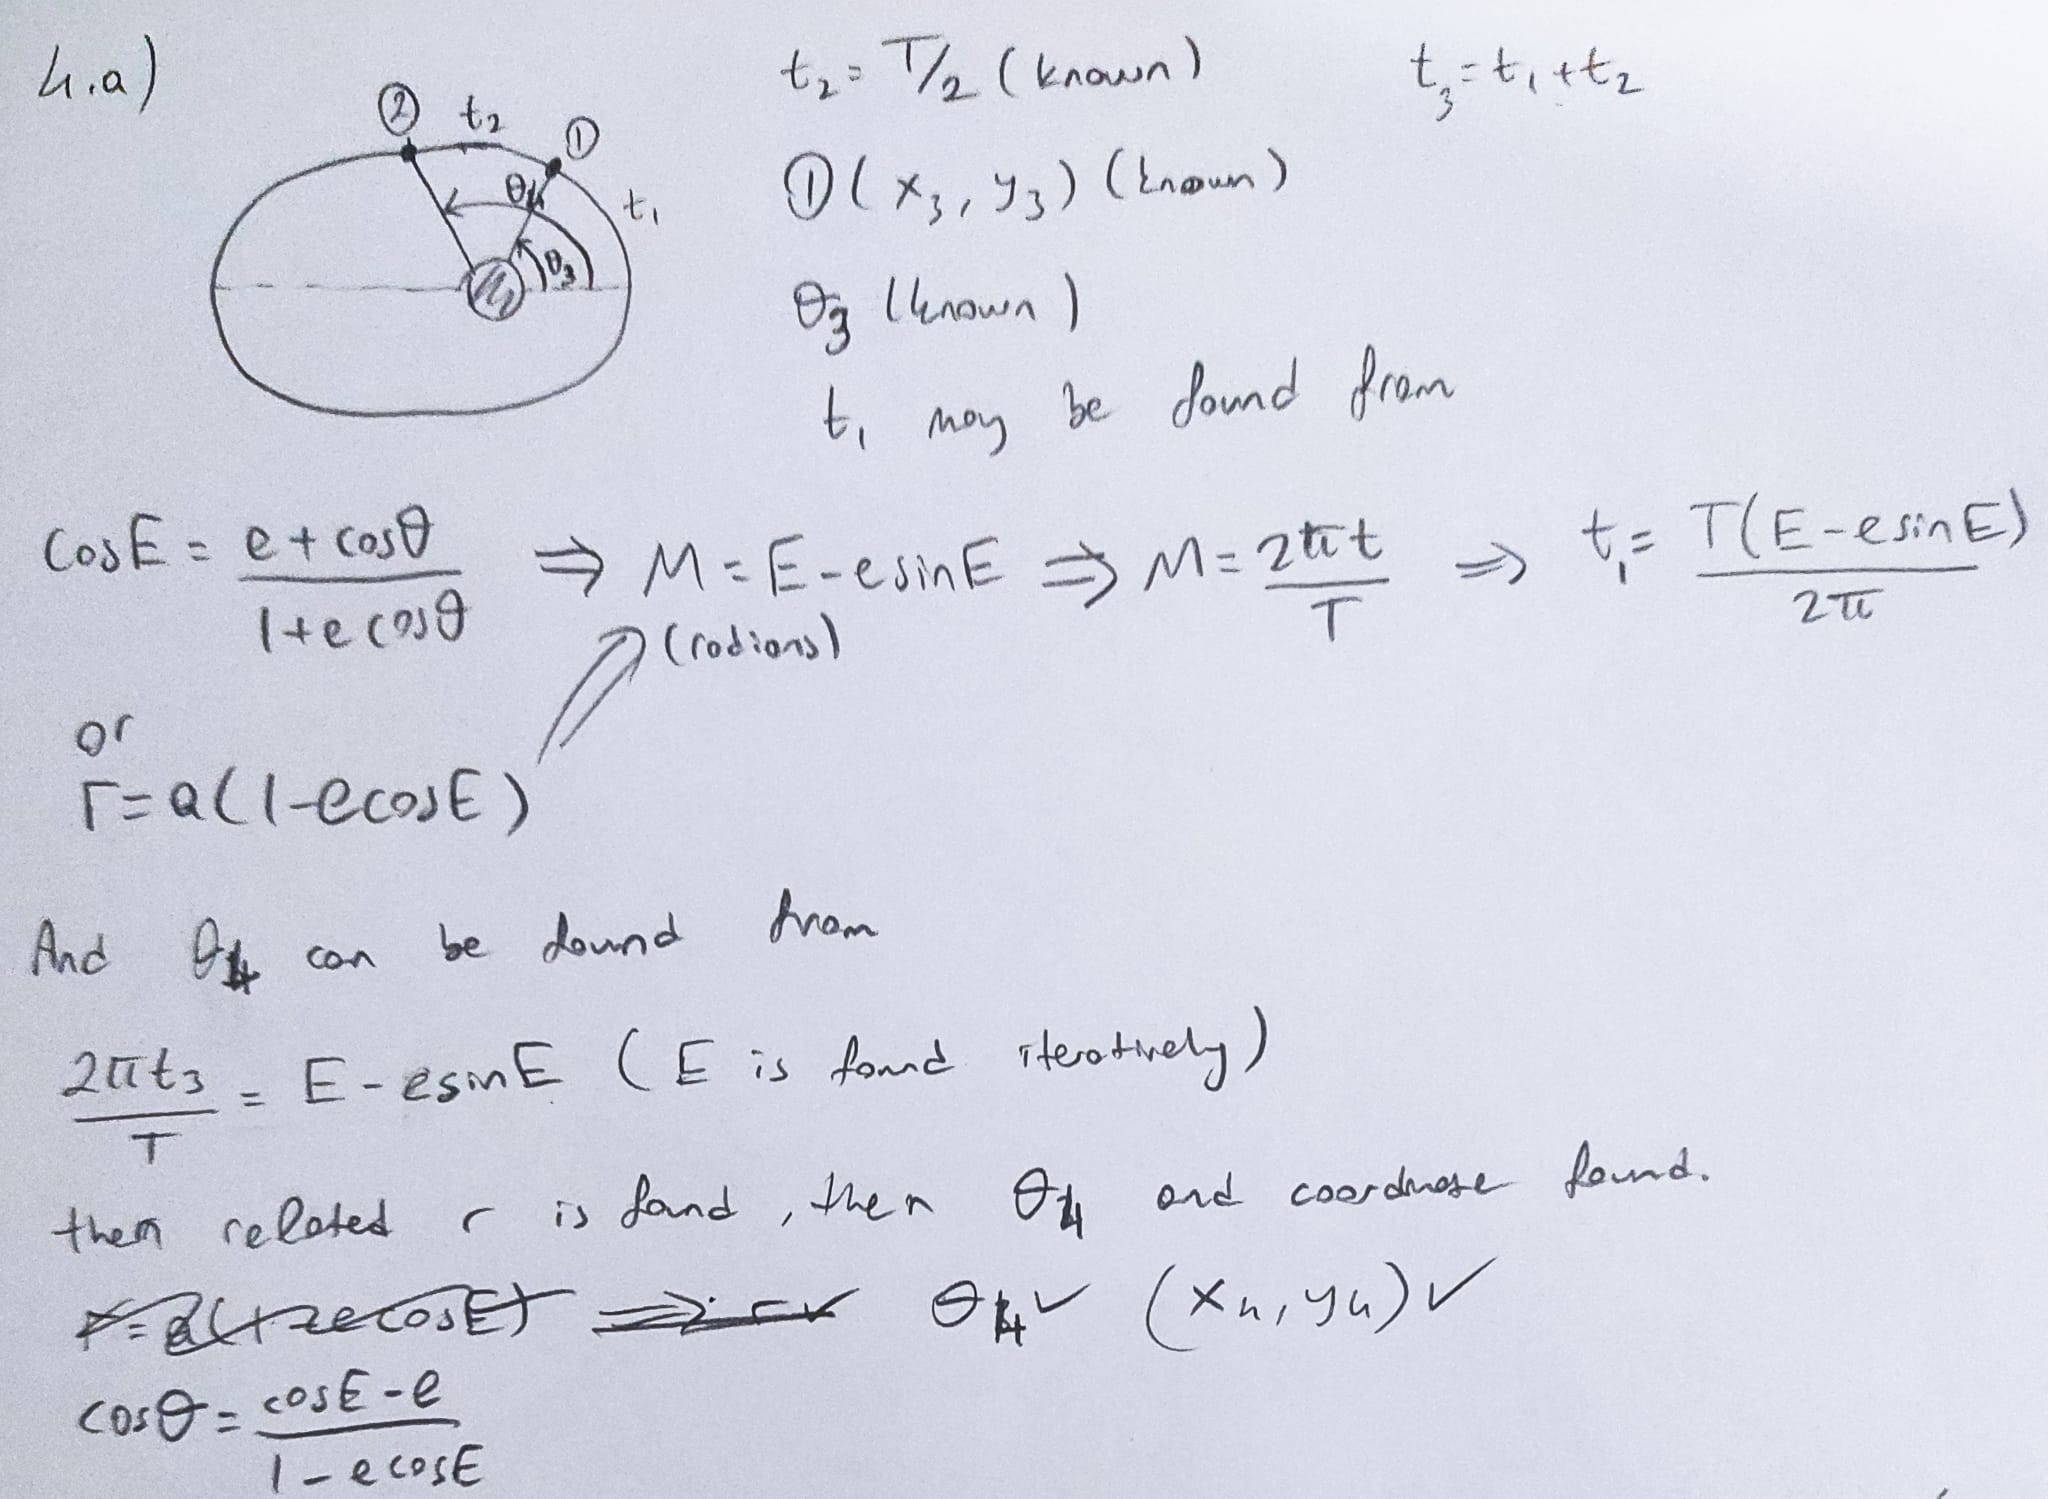 4.a)
② t₂ ①
t₁
θ₄
θ₃
t₂ = T/2 (known)    t₃ = t₁ + t₂
① (x₃, y₃) (known)
θ₃ (known)
t₁ may be found from
cosE = (e + cosθ)/(1 + e cosθ) ⇒ M = E - esinE ⇒ M = 2πt/T ⇒ t₁ = T(E - esinE)/2π
(radians)
or
r = a(1 - ecosE)
And θ₄ can be found from
2πt₃/T = E - esinE (E is found iteratively)
then related r is found, then θ₄ and coordinate found.
θ₄ ✓ (x₄, y₄) ✓
cosθ = (cosE - e)/(1 - ecosE)